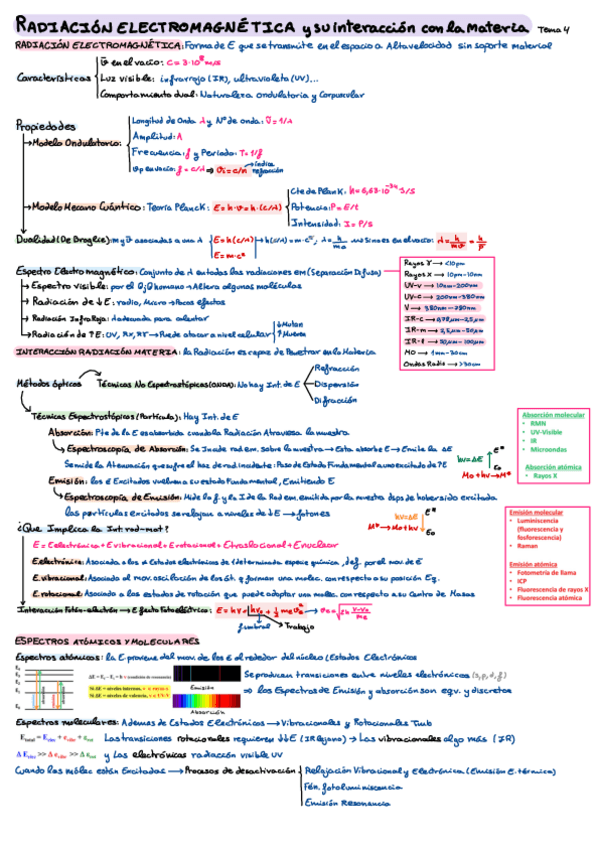 RADIACIÓN ELECTROMAGNÉTICA y su interacción con la Materia Tema 4
RADIACIÓN ELECTROMAGNÉTICA: Forma de E que se transmite en el espacio a Alta velocidad sin soporte material
Características
v en el vacío: C = 3·10⁸ m/s
Luz visible: infrarrojo (IR), ultravioleta (UV)...
Comportamiento dual: Naturaleza Ondulatoria y Corpuscular
Propiedades
→ Modelo Ondulatorio:
Longitud de Onda λ y Nº de onda: ῡ = 1/λ
Amplitud: A
Frecuencia: f y Periodo: T = 1/f
→ Modelo Mecano Cuántico: Teoría Planck: E = h·ν = h·(c/λ)
Cte de Plank: h = 6,63·10⁻³⁴ J/S
Potencia: P = E/t
Intensidad: I = P/S
Dualidad (De Broglie):
E = h(c/λ)
E = m·c²
Espectro Electromagnético: Conjunto de λ en todas las radiaciones em (Separación Difusa)
→ Espectro visible: por el Ojo humano → Altera algunas moléculas
→ Radiación de ↓E: radio, Micro → Pocos efectos
→ Radiación Infraroja: Adecuada para calentar
→ Radiación de ↑E: UV, RX, RY → Puede atacar a nivel celular
↓ Mutan
↑ Mueren
Rayos γ → <10pm
Rayos X → 10pm-10nm
UV-V → 10nm-200nm
UV-C → 200nm-380nm
V → 380nm-780nm
IR-C → 0,78µm-2,5µm
IR-m → 2,5µm-50µm
IR-l → 50µm-1000µm
MO → 1mm-30cm
Ondas Radio → >30cm
INTERACCIÓN RADIACIÓN MATERIA: la Radiación es capaz de Penetrar en la Materia
Métodos ópticos → Técnicas No Espectroscópicas (ONDA): No hay Int. de E
Refracción
Dispersión
Difracción
→ Técnicas Espectroscópicas (Partícula): Hay Int. de E
Absorción: Pte de la E es absorbida cuando la Radiación Atraviesa la muestra
→ Espectroscopía de Absorción: Se Incide rad em. sobre la muestra → Esta absorbe E → Emite la ΔE
Se mide la Atenuación que sufre el haz de rad incidente: Paso de Estado Fundamental a uno excitado de ↑E
hν=ΔE
E*
E₀
Mo+hν→M*
Absorción molecular
• RMN
• UV-Visible
• IR
• Microondas
Absorción atómica
• Rayos X
Emisión: los é Excitados vuelven a su estado Fundamental, Emitiendo E
→ Espectroscopía de Emisión: Mide la f y la I de la Rad em. emitida por la muestra dsps de haber sido excitada
las partículas excitadas se relajan a niveles de ↓E → fotones
hν=ΔE
E*
E₀
M*→Mo+hν
Emisión molecular
• Luminiscencia
(fluorescencia y
fosforescencia)
• Raman
Emisión atómica
• Fotometría de llama
• ICP
• Fluorescencia de rayos X
• Fluorescencia atómica
¿Que Implica la Int. rad-mat?
E = E electrónica + E vibracional + E rotacional + E traslacional + E nuclear
E. electrónica: Asociada a los ≠ Estados electrónicos de 1 determinada especie química, def. por el mov. de é
E. vibracional: Asociada al mov. oscilación de los át. q forman una molec. con respecto a su posición Eq.
E. rotacional: Asociada a los estados de rotación que puede adoptar una molec. con respecto a su Centro de Masas
Interacción Fotón-electrón → Efecto Fotoeléctrico: E = hν = hν₀ + ½ meν²
Umbral
Trabajo
ESPECTROS ATÓMICOS Y MOLECULARES
Espectros atómicos: la E proviene del mov. de los é alrededor del núcleo (Estados Electrónicos
Emisión
Absorción
Se producen transiciones entre niveles electrónicos (s,p,d,f)
⇒ los Espectros de Emisión y absorción son eqv. y discretos
Espectros moleculares: Además de Estados Electrónicos → Vibracionales y Rotacionales Tmb
E total = E elec + E vibr + E rot
Las transiciones rotacionales requieren ↓E (IR lejano) → Las vibracionales algo más (IR)
Δ E elec >> Δ e vibr >> Δ e rot
y Las electrónicas radiación visible UV
Cuando las moléc están Excitadas → Procesos de desactivación
Relajación Vibracional y Electrónica (Emisión E. térmica)
Fén. fotoluminiscencia
Emisión Resonancia